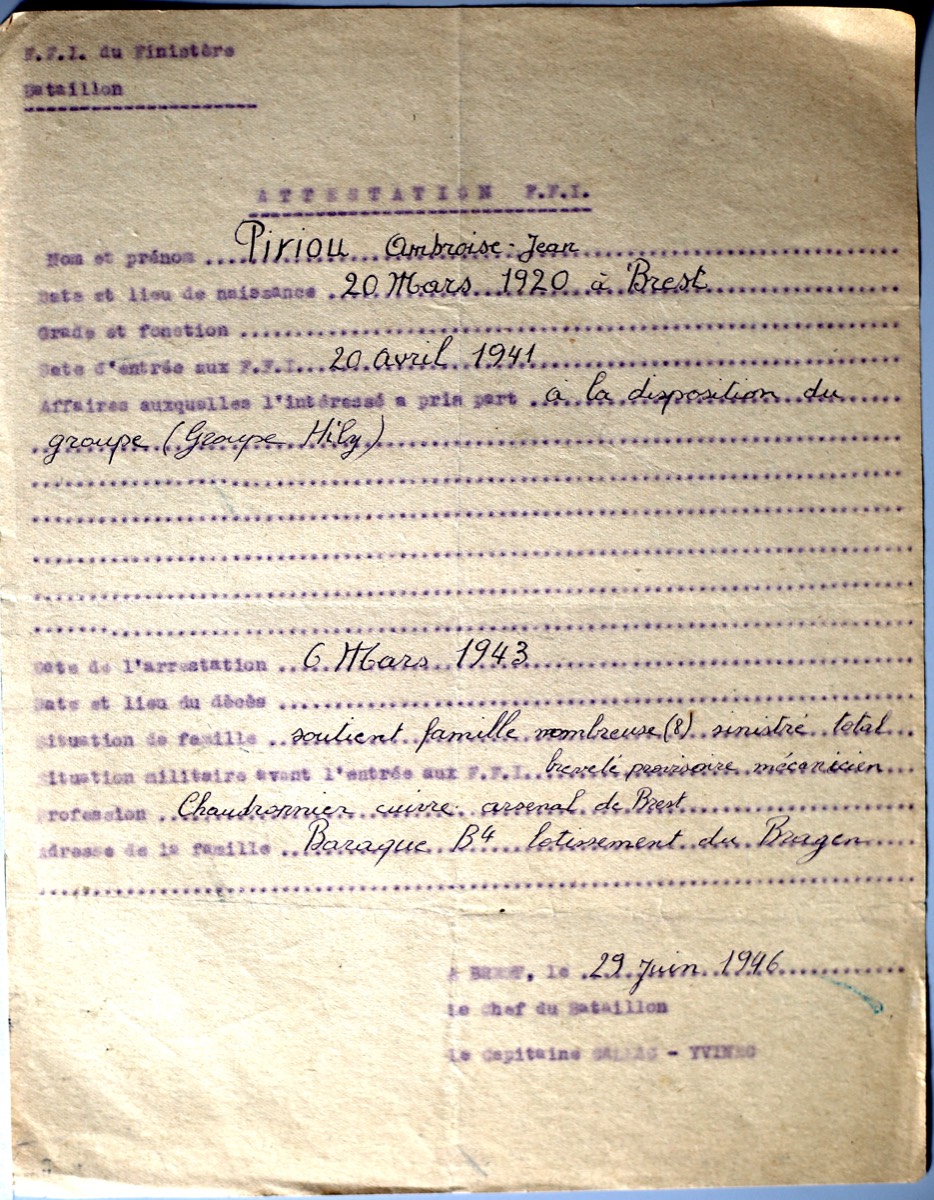 F.F.I. du Finistère
Bataillon
ATTESTATION F.F.I.
Nom et prénom ....Piriou Ambroise-Jean....
Date et lieu de naissance ..20 Mars 1920 à Brest....
Grade et fonction ....
Date d'entrée aux F.F.I...20 avril 1941....
Affaires auxquelles l'intéressé a pris part ..à la disposition du..
groupe (Groupe Hily)....
Date de l'arrestation ...6 Mars 1943....
Date et lieu du décès ....
Situation de famille ..soutient famille nombreuse (8) sinistré total
Situation militaire avant l'entrée aux F.F.I. breveté provisoire mécanicien...
Profession ..Chaudronnier cuivre arsenal de Brest....
Adresse de la famille ..Baraque B4 lotissement du....
A BREST, le .29 Juin 1946....
Le Chef du Bataillon
Le Capitaine - YVINEC